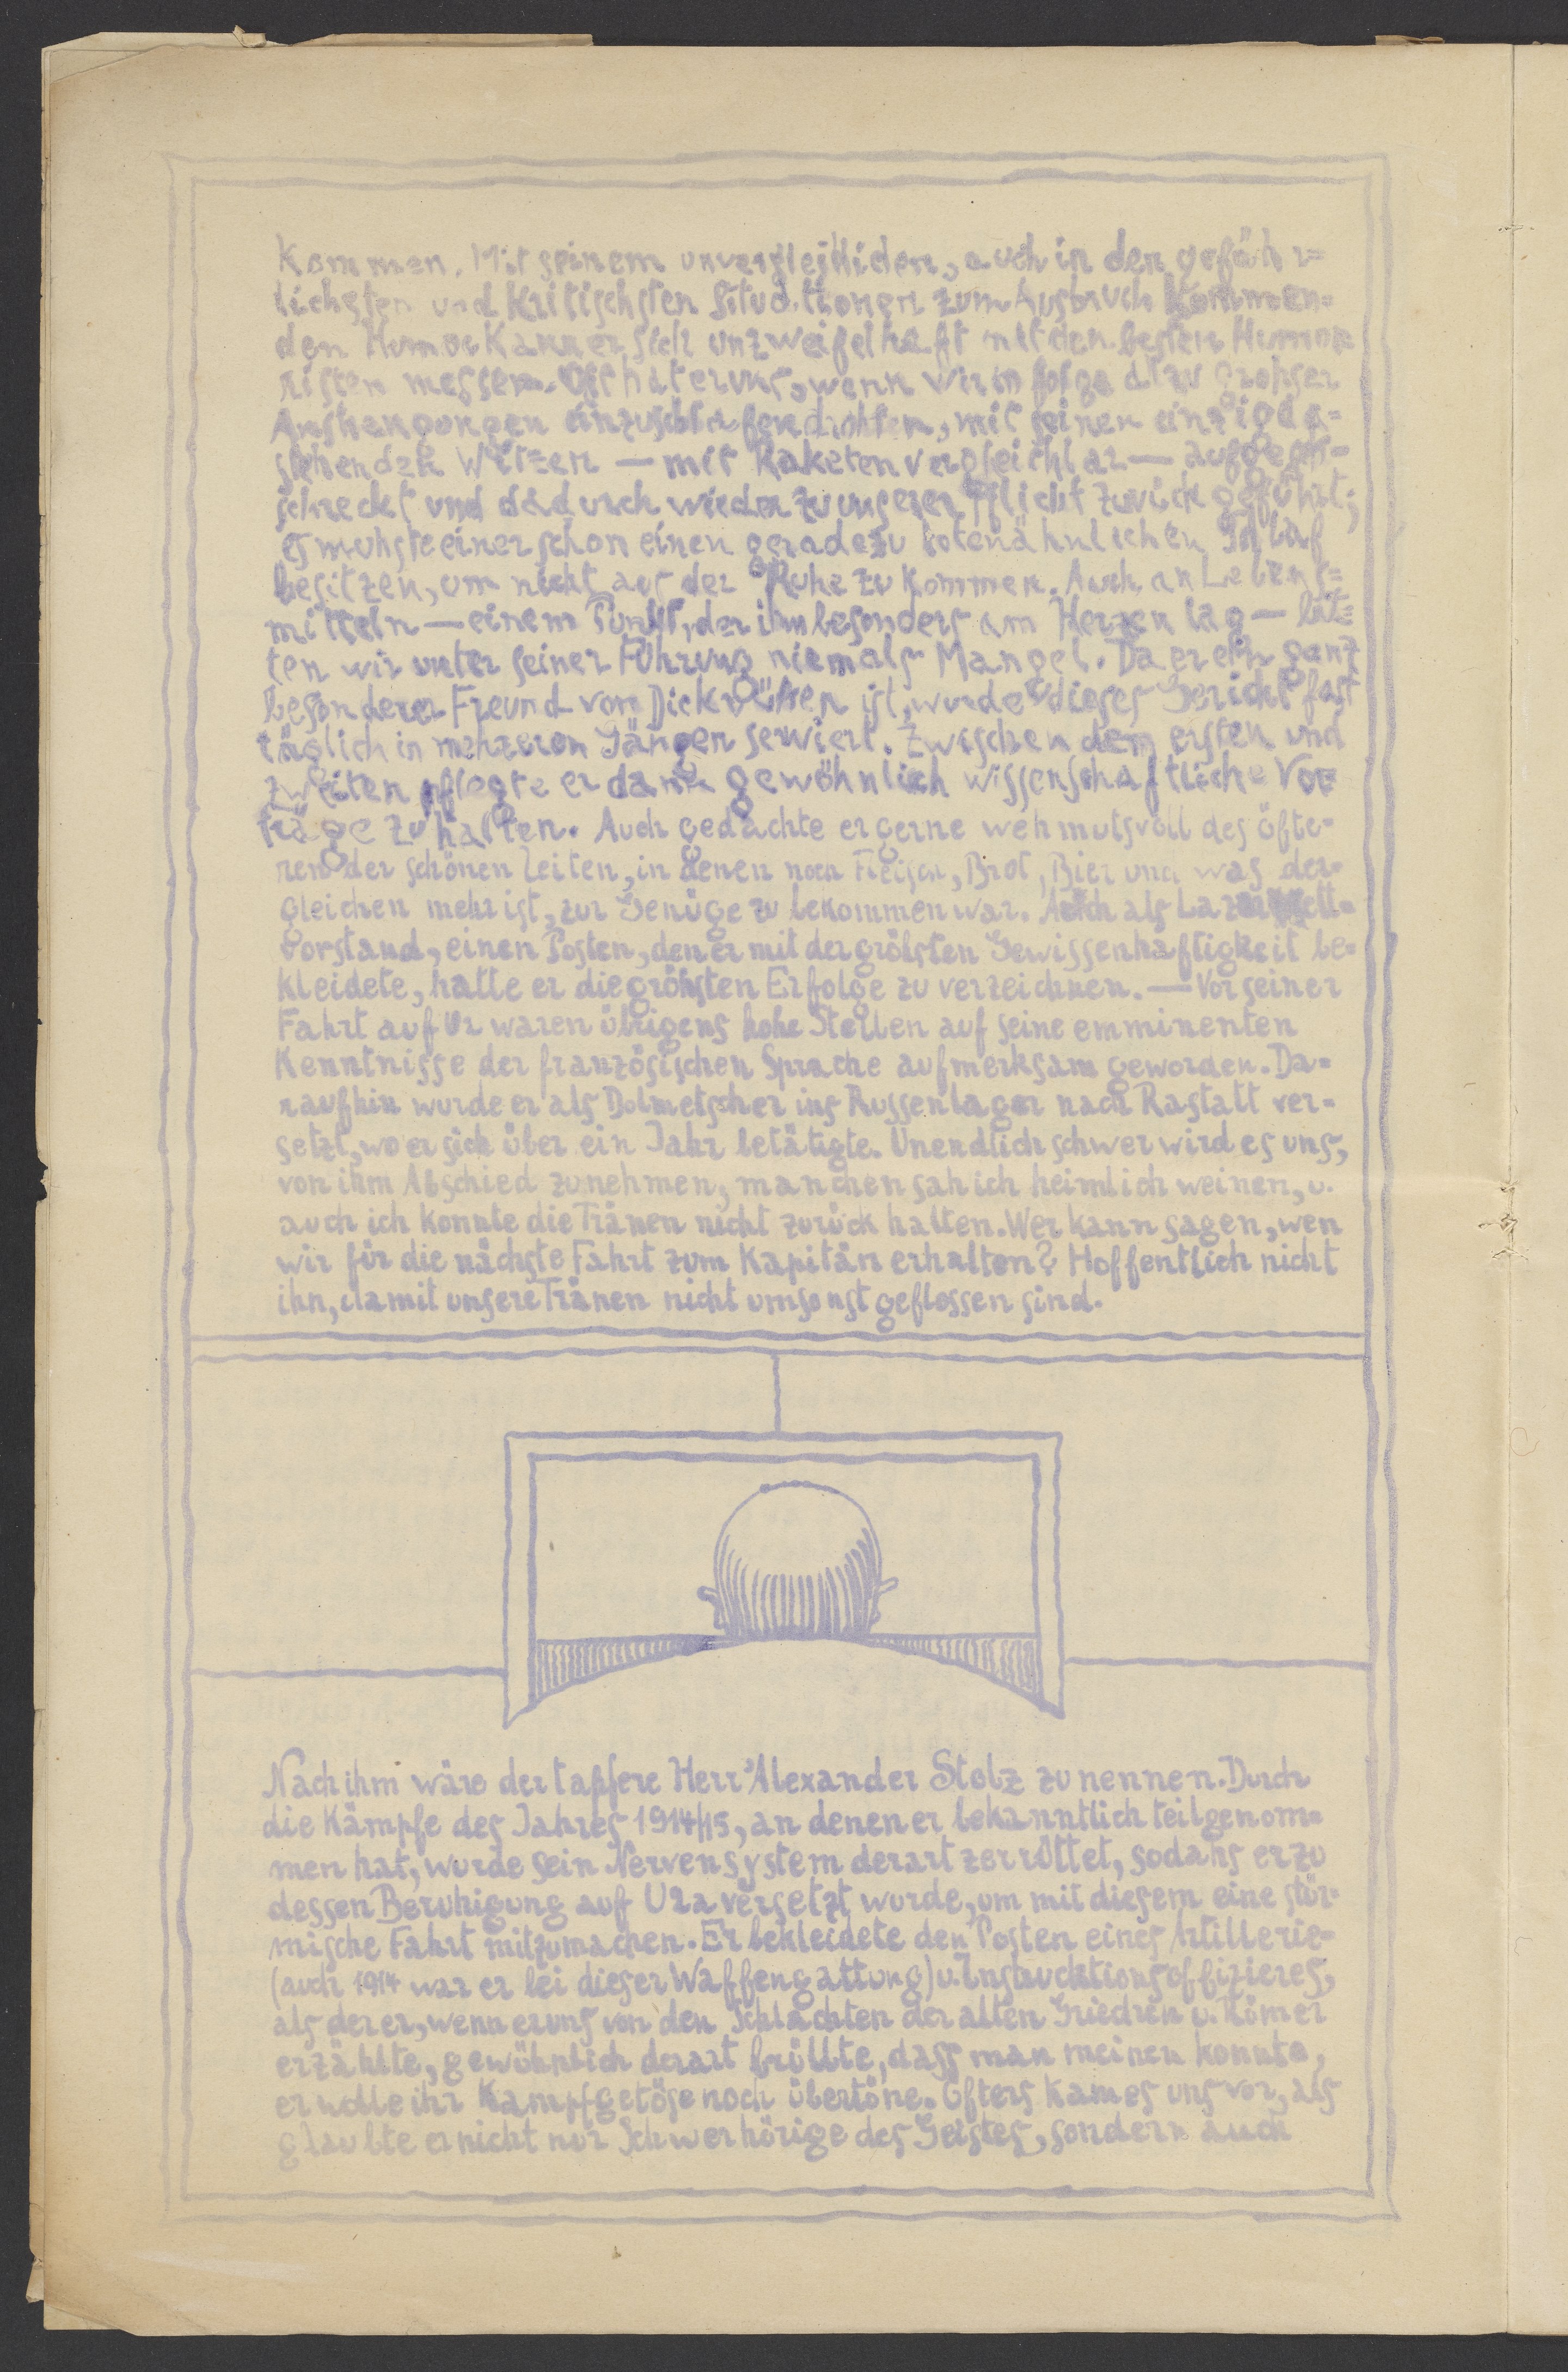 kommen. Mit seinem unvergleichlichen, auch in den gefähr=
lichsten und kritischsten Situationen zum Ausbruch kommen=
den Humor kann er sich unzweifelhaft mit den besten Humo=
risten messen. Oft hat er uns, wenn wir infolge allzu grohser
Anstrengungen einzuschlafen drohten, mit seinen einzigda=
stehenden Witzen — mit Raketen vergleichbar — aufge=
schreckt und dadurch wieder zu unserer Pflicht zurückgeführt;
es muhste einer schon einen geradezu totenähnlichen Schlaf
besitzen, um nicht aus der Ruhe zu kommen. Auch an Lebens=
mitteln — einem Punkt, der ihm besonders am Herzen lag — lit=
ten wir unter seiner Führung niemals Mangel. Da er ein ganz
besonderer Freund von Dickrüben ist, wurde dieses Gericht fast
täglich in mehreren Gängen serviert. Zwischen dem ersten und
zweiten pflegte er dann gewöhnlich wissenschaftliche Vor=
träge zu halten. Auch gedachte er gerne wehmutsvoll des öfte=
ren der schönen Zeiten, in denen noch Fleisch, Brot, Bier und was der=
gleichen mehr ist, zur Genüge zu bekommen war. Auch als Lazarett=
vorstand, einen Posten, den er mit der gröhsten Gewissenhaftigkeit be=
kleidete, hatte er die gröhsten Erfolge zu verzeichnen. — Vor seiner
Fahrt auf Ur waren übrigens hohe Stellen auf seine emminenten
Kenntnisse der französischen Sprache aufmerksam geworden. Da=
raufhin wurde er als Dolmetscher ins Russenlager nach Rastatt ver=
setzt, wo er sich über ein Jahr betätigte. Unendlich schwer wird es uns,
von ihm Abschied zu nehmen, manchen sah ich heimlich weinen, u.
auch ich konnte die Tränen nicht zurück halten. Wer kann sagen, wen
wir für die nächste Fahrt zum Kapitän erhalten? Hoffentlich nicht
ihn, damit unsere Tränen nicht umsonst geflossen sind.
Nach ihm wäre der tapfere Herr Alexander Stolz zu nennen. Durch
die Kämpfe des Jahres 1914/15, an denen er bekanntlich teilgenom=
men hat, wurde sein Nervensystem derart zerrüttet, sodahs er zu
dessen Beruhigung auf Ura versetzt wurde, um mit diesem eine stür=
mische Fahrt mitzumachen. Er bekleidete den Posten eines Artillerie=
(auch 1914 war er bei dieser Waffengattung) u. Instrucktionsoffizieres,
als der er, wenn er uns von den Schlachten der alten Griechen u. Römer
erzählte, gewöhnlich derart brüllte, dass man meinen konnte,
er wolle ihr Kampfgetöse noch übertöne. Öfters kam es uns vor, als
glaubte er nicht nur Schwerhörige des Geistes, sondern auch